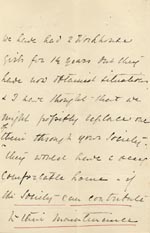 we have had 2 Workhouse
girls for 14 years but they
have now obtained situations
& I have thought that we
might probably replace one of
them through your Society.
They would have a very
comfortable home - if
the Society can contribute
to their maintenance